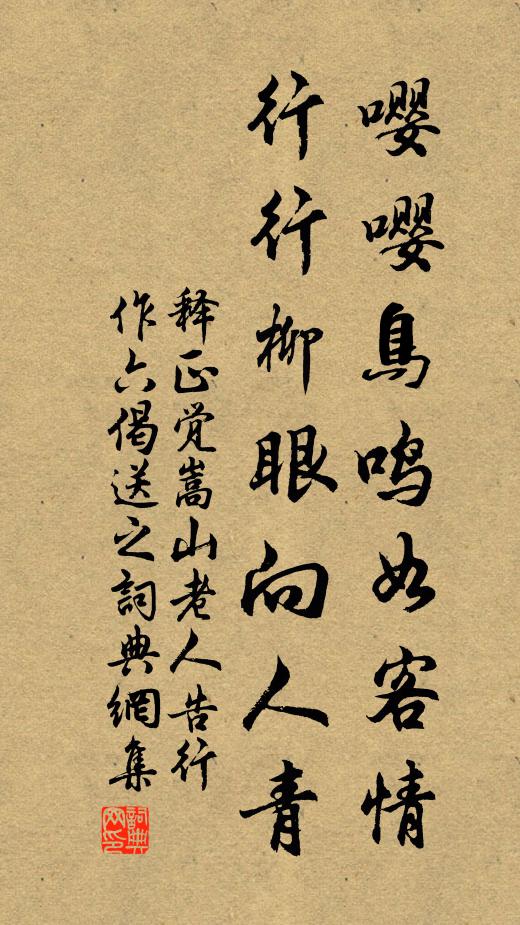 嘤嘤鳥鳴如客情
行行柳眼向人青
释正觉嵩山老人告行
作六偈送之詞典網集
詞典網印